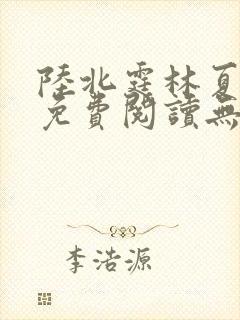 陸北霆林夏
免費閱讀無
李浩源